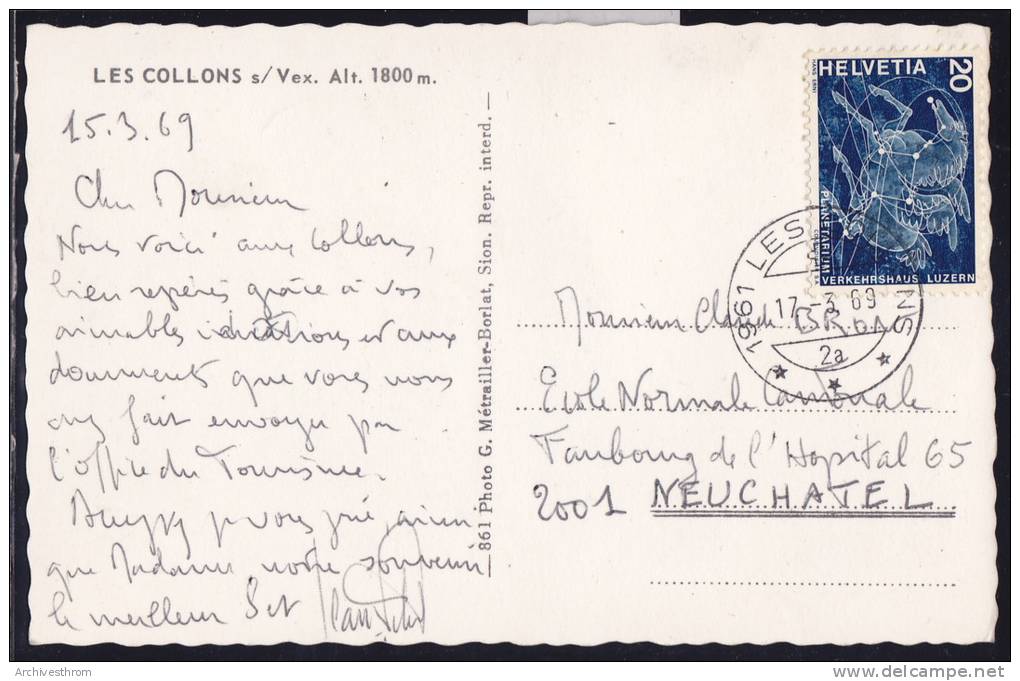 LES COLLONS s/Vex. Alt. 1800 m.
15.3.69
Cher Monsieur
Nous voici aux Collons,
bien repérés grâce à vos
aimables indications et aux
documents que vous nous
avez fait envoyer par
l'office du Tourisme.
je vous prie, ainsi
que Madame notre souvenir
le meilleur
861 Photo G. Métrailler-Borlat, Sion. Repr. interd.
HELVETIA 20
HANS ERNI
PLANETARIUM
VERKEHRSHAUS LUZERN
1961 LES NS
17.-3.69
2a
Monsieur Claude
Ecole Normale Cantonale
Faubourg de l'Hopital 65
2001 NEUCHATEL
Archivesthrom
www.delcampe.net